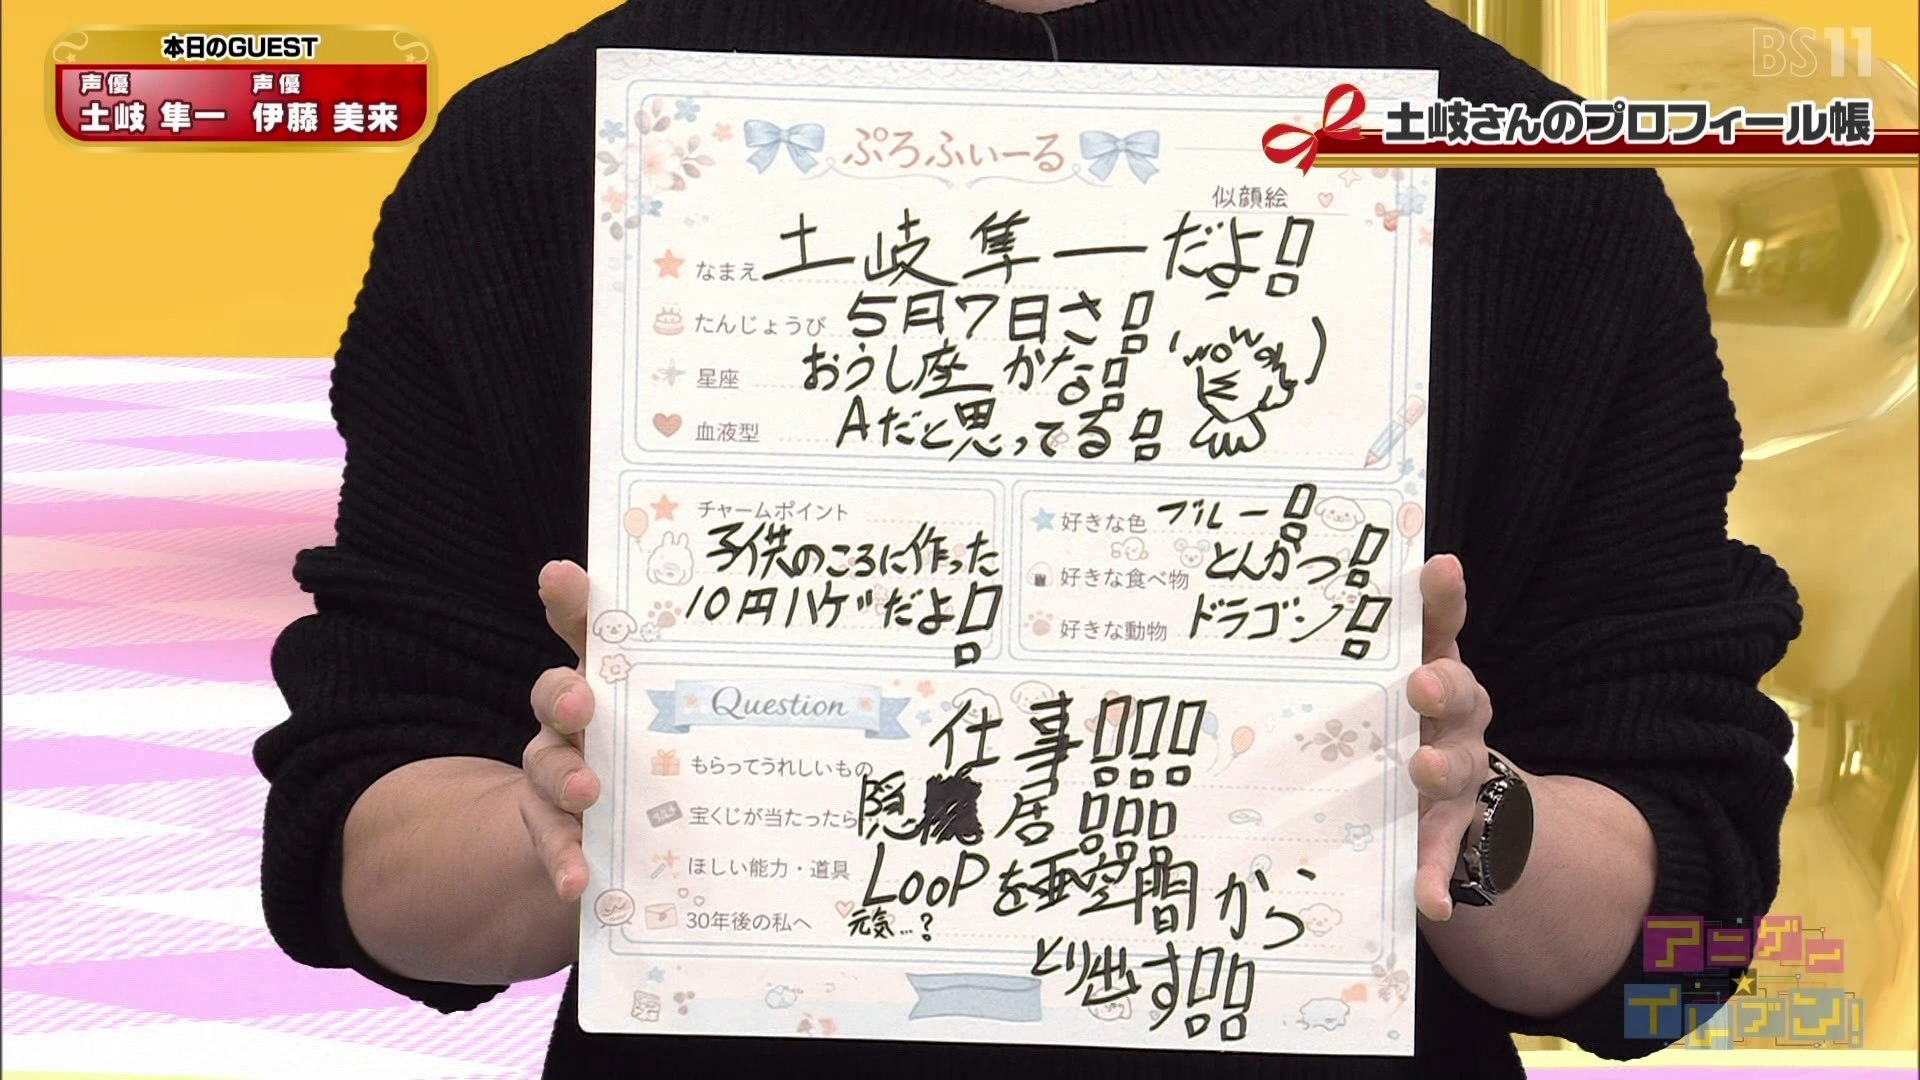 本日のGUEST
声優 声優
土岐 隼一 伊藤 美来
BS11
土岐さんのプロフィール帳
ぷろふぃーる
似顔絵
なまえ 土岐隼一だよ!!
たんじょうび 5月7日さ!!
星座 おうし座かな!!
血液型 Aだと思ってる!!
チャームポイント
子供のころに作った
10円ハゲだよ!
好きな色 ブルー!!
好きな食べ物 とんかつ!
好きな動物 ドラゴン!
Question
もらってうれしいもの 仕事!!!
宝くじが当たったら 隠居!!!
ほしい能力・道具 LooPを亜空間から
とり出す!!
30年後の私へ 元気…?
アニゲー
イレブン!